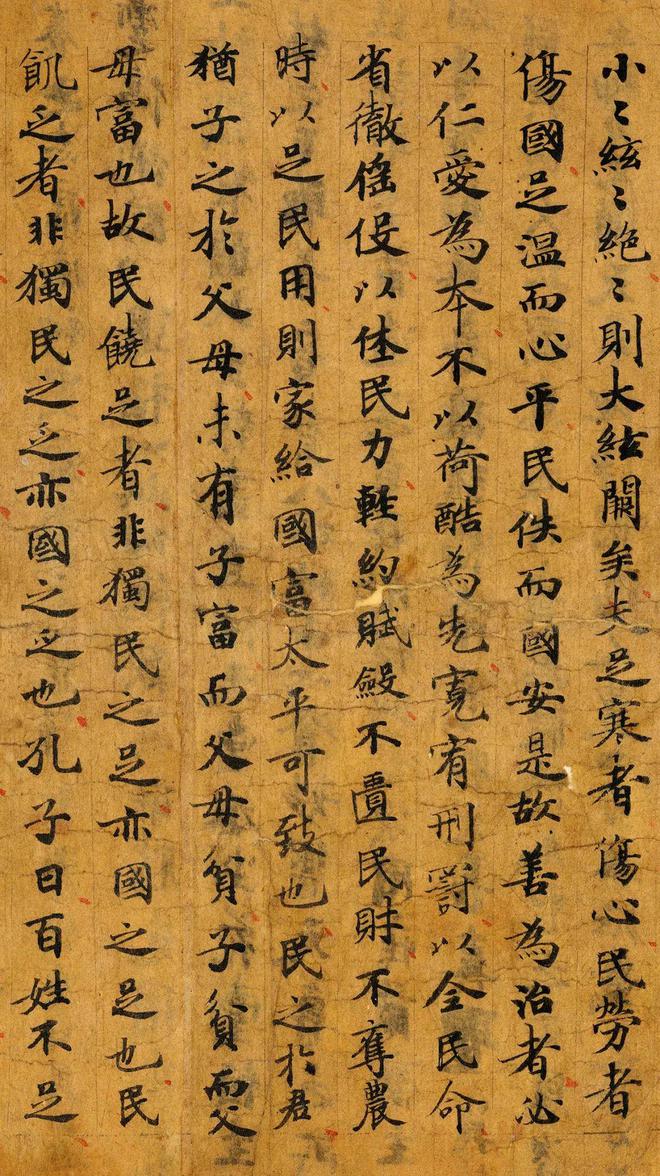 小〻絃〻絶〻則大絃闕矣夫足寒者傷心民勞者
傷國足温而心平民佚而國安是故善為治者必
以仁愛為本不以苛酷為先寬宥刑罸以全民命
省徹傜伇以休民力輕約賦斂不匱民財不奪農
時以足民用則家給國富太平可致也民之於君
猶子之於父母未有子富而父母貧子貧而父
母富也故民饒足者非獨民之足亦國之足也民
飢乏者非獨民之乏亦國之乏也孔子曰百姓不足